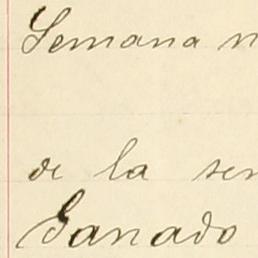 Semana
de la
Ganado